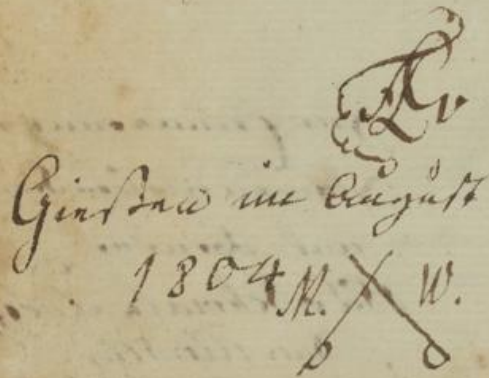 Gießen im August
1804 M. W.